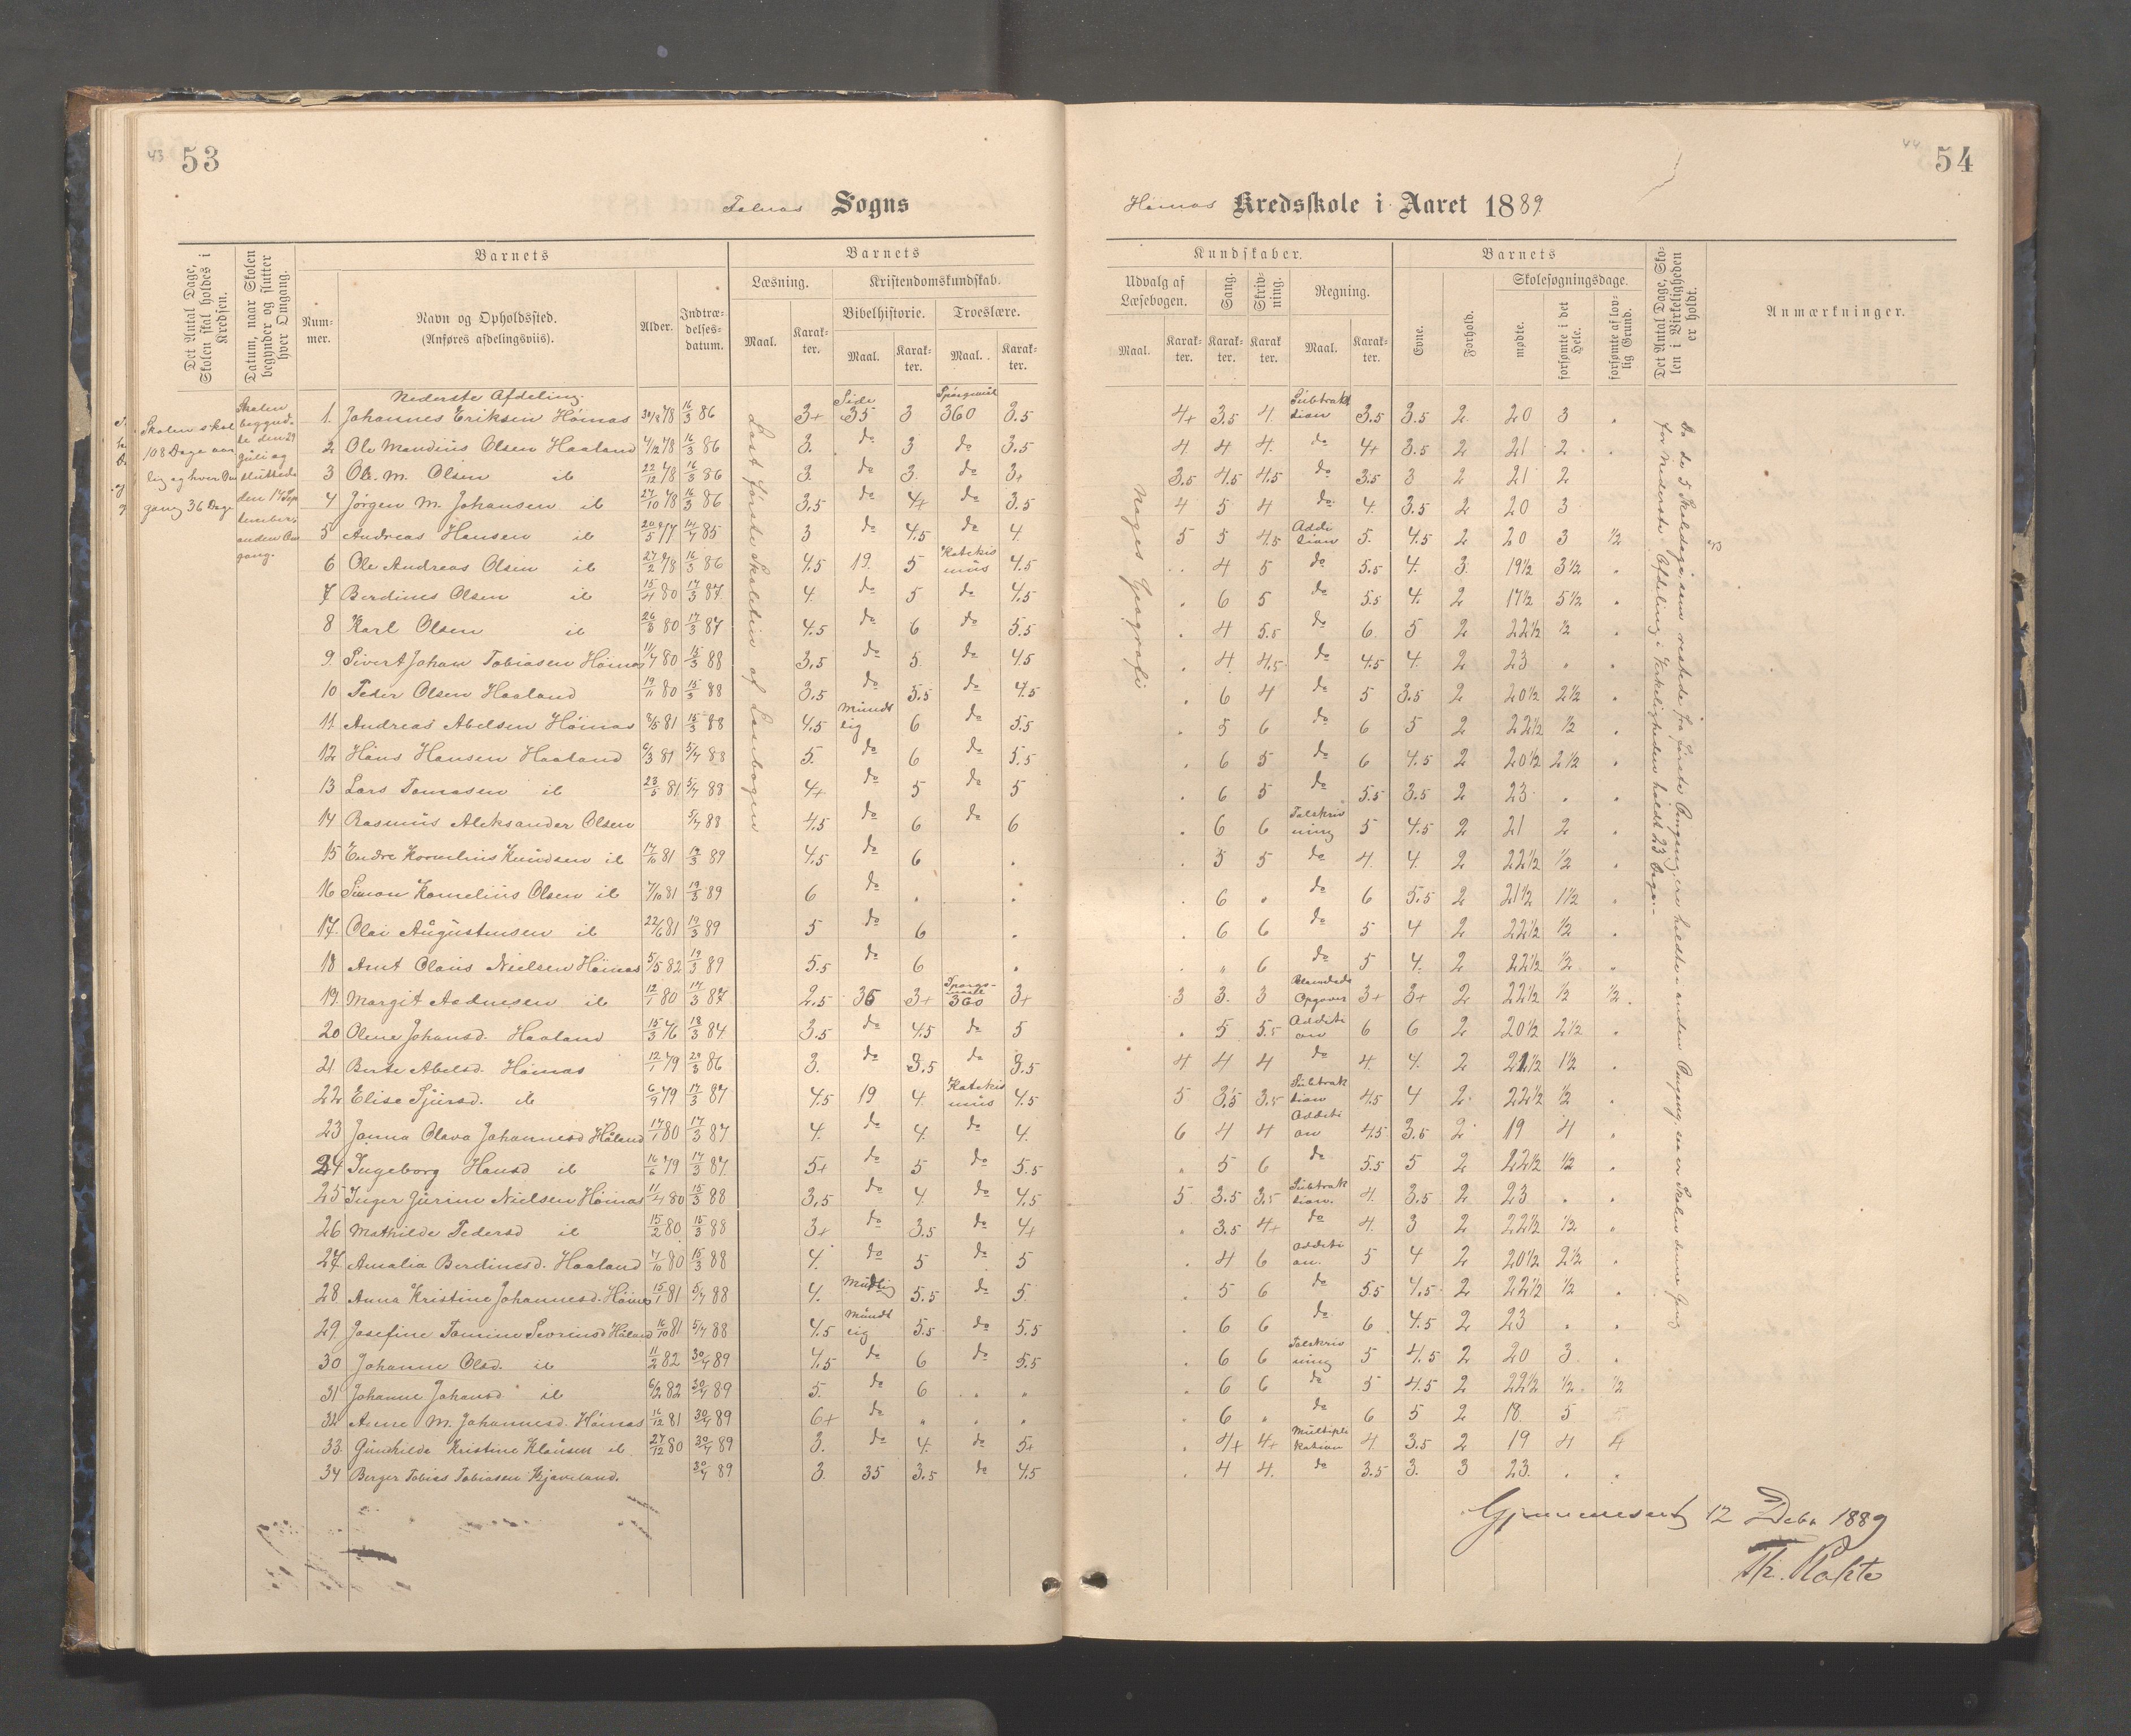 43 53
Sogns
Det Antal Dage, Skolen skal holdes i Kredsen.
Datum, naar Skolen begynder og slutter hver Omgang.
Barnets
Num-mer.
Navn og Opholdssted. (Anføres afdelingsviis).
Alder.
Indtræ-delses-datum.
Barnets
Læsning.
Maal.
Karak-ter.
Kristendomskundskab.
Bibelhistorie.
Maal.
Karak-ter.
Troeslære.
Maal.
Karak-ter.
Skolen skal
108 Dage aar
lig og hver Om
gang 36 Dage
Skolen
begynd-
te den 29
Juli og
sluttede
den 17 Sep
tembers
anden Om
gang.
Læst første Skoletin af Læsebogen
Nederste Afdeling
1. Johannes Eriksen Höinas 30/12 78 16/3 86 3+ Side 35 3 Spörgsmål 360 3.5
2 Ole Mandius Olsen Haaland 4/12 78 16/3 86 3. do 3 do 3.5
3 Ole. M. Olsen ib 22/12 78 16/3 86 3 do 3. do 3+
4 Jørgen M. Johansen ib 27/10 78 16/3 86 3,5 do 4+ do 3.5
5 Andreas Hansen ib 20/5 77 14/4 85 3 do 4.5 do 4.
6 Ole Andreas Olsen ib 27/2 78 16/3 86 4.5 19. 5 Katekis mus 4.5
7 Berdines Olsen ib 15/4 80 17/3 87 4. do 5 do 4.5
8 Karl Olsen ib 26/3 80 17/3 87 4.5 do 6 do 5.5
9. Sivert Johan Tobiasen Höinas 11/4 80 15/3 88 3,5 do 5. do 4.5
10 Peder Olsen Haaland 19/11 80 15/3 88 3,5 do 5.5 do 4.5
11. Andreas Abelsen Höinas 8/5 81 15/3 88 4.5 Mundt lig 6 do 5.5
12 Hans Hansen Haaland 6/3 81 5/4 88 5. do 6 do 5.5
13 Lars Tomasen ib 23/5 81 5/4 88 4+ do 5 do 5
14 Rasmus Aleksander Olsen 5/4 88 4.5 do 6 do 6
15 Endre Kornelius Knudsen ib 17/10 81 19/3 89 4.5 do 6 .
16 Simon Kornelius Olsen ib 7/10 81 19/3 89 6 do . .
17. Olai Augustinsen ib 22/6 81 19/3 89 5 do 6 .
18 Arnt Olaus Nielsen Höinas 5/5 82 19/3 89 5.5 do 6 .
19. Margit Aadnesen ib 12/1 80 14/3 87 2,5 36 3+ Spørgs-maal 360 3+
20 Olene Johansd. Haaland 15/3 76 18/3 84 3.5 do 4.5 do 5
21 Berte Abelsd. Höinas 12/1 79 29/3 86 3. do 3.5 do 3.5
22 Elise Sjursd. ib 6/9 79 17/3 87 4.5 19 4. Katekis mus 4.5
23 Janna Olava Johannesd Håland 17/1 80 17/3 87 4. do 4. do 4.
24 Ingeborg Hansd ib 16/6 79 17/3 87. 5+ do 5 do 5.5
25 Inger Jurine Nielsen Höinas 11/4 80 15/3 88 3,5 do 4. do 4,5
26 Mathilde Pedersd ib 15/2 80 15/3 88 3+ do 3.5 do 4+
27 Amalia Berdinesd. Haaland 4/10 80 15/3 88 4. do 5 do 5
28 Anna Kristine Johannesd. Höinas 15/1 81 5/4 88 4. Mudlig 5.5 do 5.
29. Josefine Tomine Sevrinsd Håland 16/10 81 5/4 88 4.5 Mundt lig 5.5 do 5.5
30 Johanne Olsd. ib 11/2 82 30/4 89 4,5 do 6 do 5.5
31 Johanne Johansd ib 6/2 82 30/4 89 5. do 6 . "
32 Anne M. Johannesd. Höinas 16/12 81 30/4 89 6+ do " . "
33. Gunhilde Kristine Klausen ib 27/12 80 30/4 89 3. do 4. do 5+
34 Berger Tobias Tobiasen Kjaveland. 30/4 89 3. 35 3.5 do 4.5
44 54
Höinas Kredsskole i Aaret 1889.
Kundskaber.
Udvalg af Læsebogen.
Maal.
Karak-ter.
Sang.
Karak-ter.
Skriv-ning.
Karak-ter
Regning.
Maal.
Karak-ter.
Barnets
Evne.
Forhold.
Skolesøgningsdage.
mødte.
forsømte i det Hele.
forsømte af lov-lig Grund.
Det Antal Dage, Sko-len i Virkeligheden er holdt.
Anmærkninger.
Noges Geografi
4+ 3,5 4. Subtrakt sion 3.5 3.5 2. 20 3 .
4 4 4. do 4+ 3.5 2 21 2 .
3,5 4.5 4.5 do 3.5 3 2 21 2
4 5 4 do 4. 3.5 2 20 3
5 5 4.5 Addi sion 5. 4.5 2 20 3 1/2
. 4 5 do 5.5 4. 3. 19 1/2 3 1/2 .
. 6 5 do 5.5 4. 2 17 1/2 5 1/2 .
. 4 5.5 do 6. 5 2 22 1/2 1/2 .
. 4 4.5 do 4.5 4. 2 23 " .
. 6 4 do 5 3.5 2 20 1/2 2 1/2 .
. 5 6 do 6 5 2 22 1/2 1/2 .
. 6 5 do 6 4.5 2 20 1/2 2 1/2 .
. 6 5 do 5.5 3.5 2 23 . .
. 6 6 Talskriv ning 5 4.5 2 21 2 .
. 5 5 do 4. 4. 2 22 1/2 1/2 .
. 6 " do 6 5.5 2 21 1/2 1 1/2 .
. 6 6 do 5 4 2 22 1/2 1/2 .
. " 6 do 5 4. 2 22 1/2 1/2 "
3 3. 3 Blandede Opgaver 3+ 3+ 2 22 1/2 1/2 1/2.
. 5 5.5 Additi on 6 6 2 20 1/2 2 1/2 .
4 4 4 do 4. 4. 2 21 1/2 1 1/2 .
5 3.5 3.5 Subtrak sion 4.5 4 2. 22 1/2 1/2 .
6 4 4 Additi on 4.5 3.5 2 19 4 .
. 5 6 do 5.5 5 2 22 1/2 1/2 .
5 3.5 3.5 Subtrak sion. 4. 3.5 2. 23 . .
. 3.5 4+ do 4. 3 2 22 1/2 1/2 "
. 4 6 Additi on. 5 4 2 20 1/2 2 1/2 .
. 5 6 do 5.5 4.5 2 22 1/2 1/2 .
. 6 6 do 6 4.5 2 23 . .
. 6 6 Talskriv ning 5 4.5 2 20 3. .
. 6 6 do 5 4.5 2 22 1/2 1/2. 1/2
. 6 " do 6 5 2 18. 5
. 4+ 4+ Multipli kation 4. 3.5 2 19 4 4
. 4 4. do 3.5 3. 3 23. . .
Da de 5 Skoledage, som restede fra første Omgang, ere holdte i anden Omgang, saa er Skolen denne Gang
for Nederste Afdeling i Virkeligheden holdt 23 Dage.-
Gjennemseet 12 Debr 1889